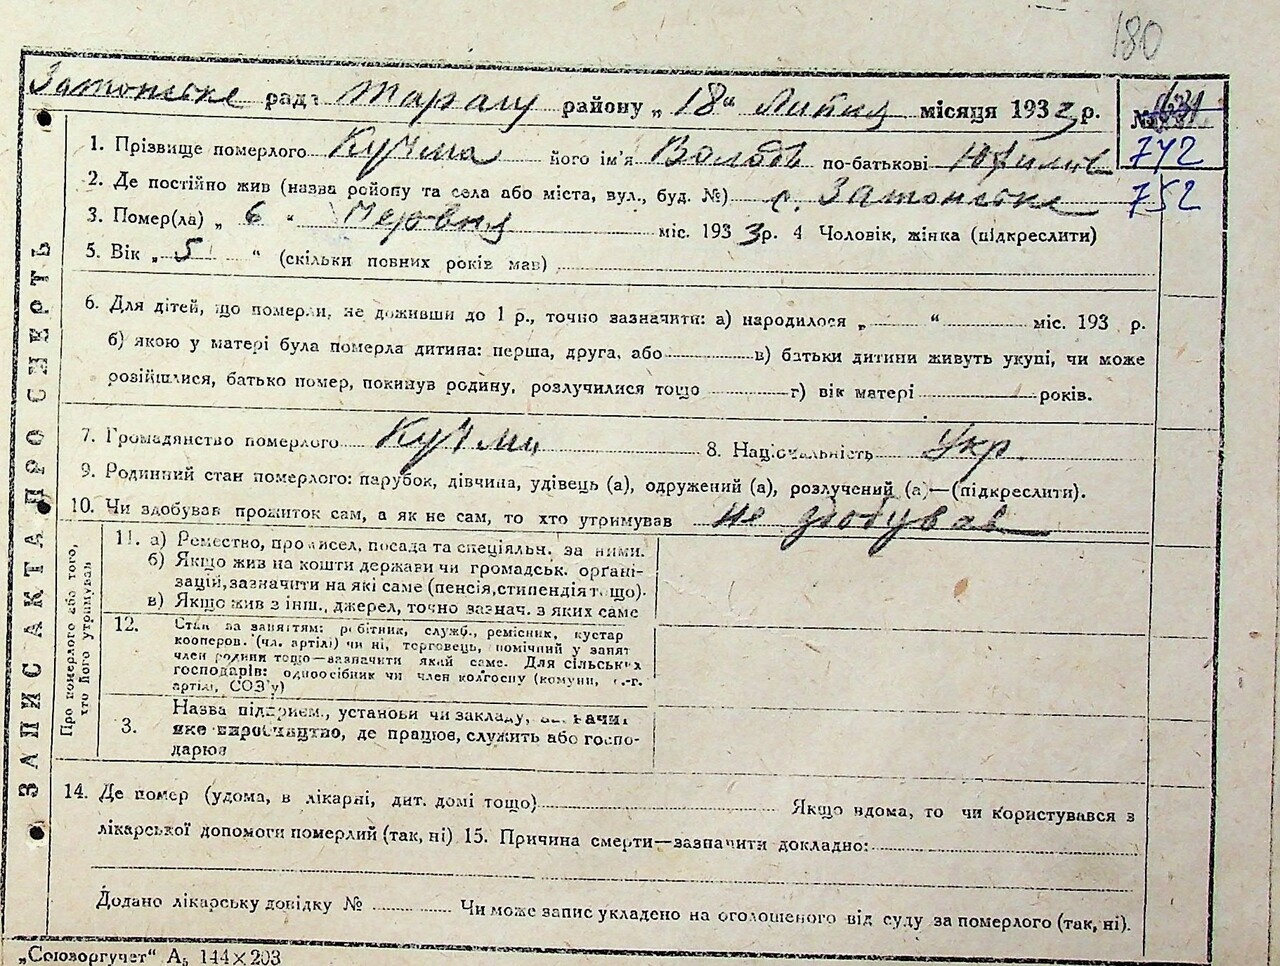 180
Затонське рада Таращ району „18" Липня місяця 1933 р. № 631
1. Прізвище померлого Кучма його ім'я Володь по-батькові 742
2. Де постійно жив (назва району та села або міста, вул., буд. №) с. Затонське 752
3. Помер(ла) „ 6 " Червня міс. 1933р. 4 Чоловік, жінка (підкреслити)
5. Вік „ 5 " (скільки повних років мав)
6. Для дітей, що померли, не доживши до 1 р., точно зазначити: а) народилося „ " міс. 193 р.
б) якою у матері була померла дитина: перша, друга, або в) батьки дитини живуть укупі, чи може
розійшлися, батько помер, покинув родину, розлучилися тощо г) вік матері років.
7. Громадянство померлого Кучми 8. Національність Укр.
9. Родинний стан померлого: парубок, дівчина, удівець (а), одружений (а), розлучений (а)—(підкреслити).
10. Чи здобував прожиток сам, а як не сам, то хто утримував не здобував
ЗАПИС АКТА ПРО СМЕРТЬ
Про померлого або того,
хто його утримував
11. а) Ремество, промисел, посада та спеціяльн. за ними.
б) Якщо жив на кошти держави чи громадськ. орґані-
зацій, зазначити на які саме (пенсія, стипендія тощо).
в) Якщо жив з інш., джерел, точно зазнач. з яких саме
12. Стан за заняттям: робітник, служб., ремісник, кустар
кооперов. (чл. артілі) чи ні, торговець, помічний у занят
член родини тощо—зазначити який саме. Для сільських
господарів: одноосібник чи член колгоспу (комуни, с.-г.
артілі, СОЗ'у)
3. Назва підприєм., установи чи закладу, зазначит
яке виробництво, де працює, служить або госпо-
дарює
14. Де помер (удома, в лікарні, дит. домі тощо) Якщо вдома, то чи користувався з
лікарської допомоги померлий (так, ні) 15. Причина смерти—зазначити докладно:
Додано лікарську довідку № Чи може запис укладено на оголошеного від суду за померлого (так, ні).
„Союзоргучет" А₅ 144×203